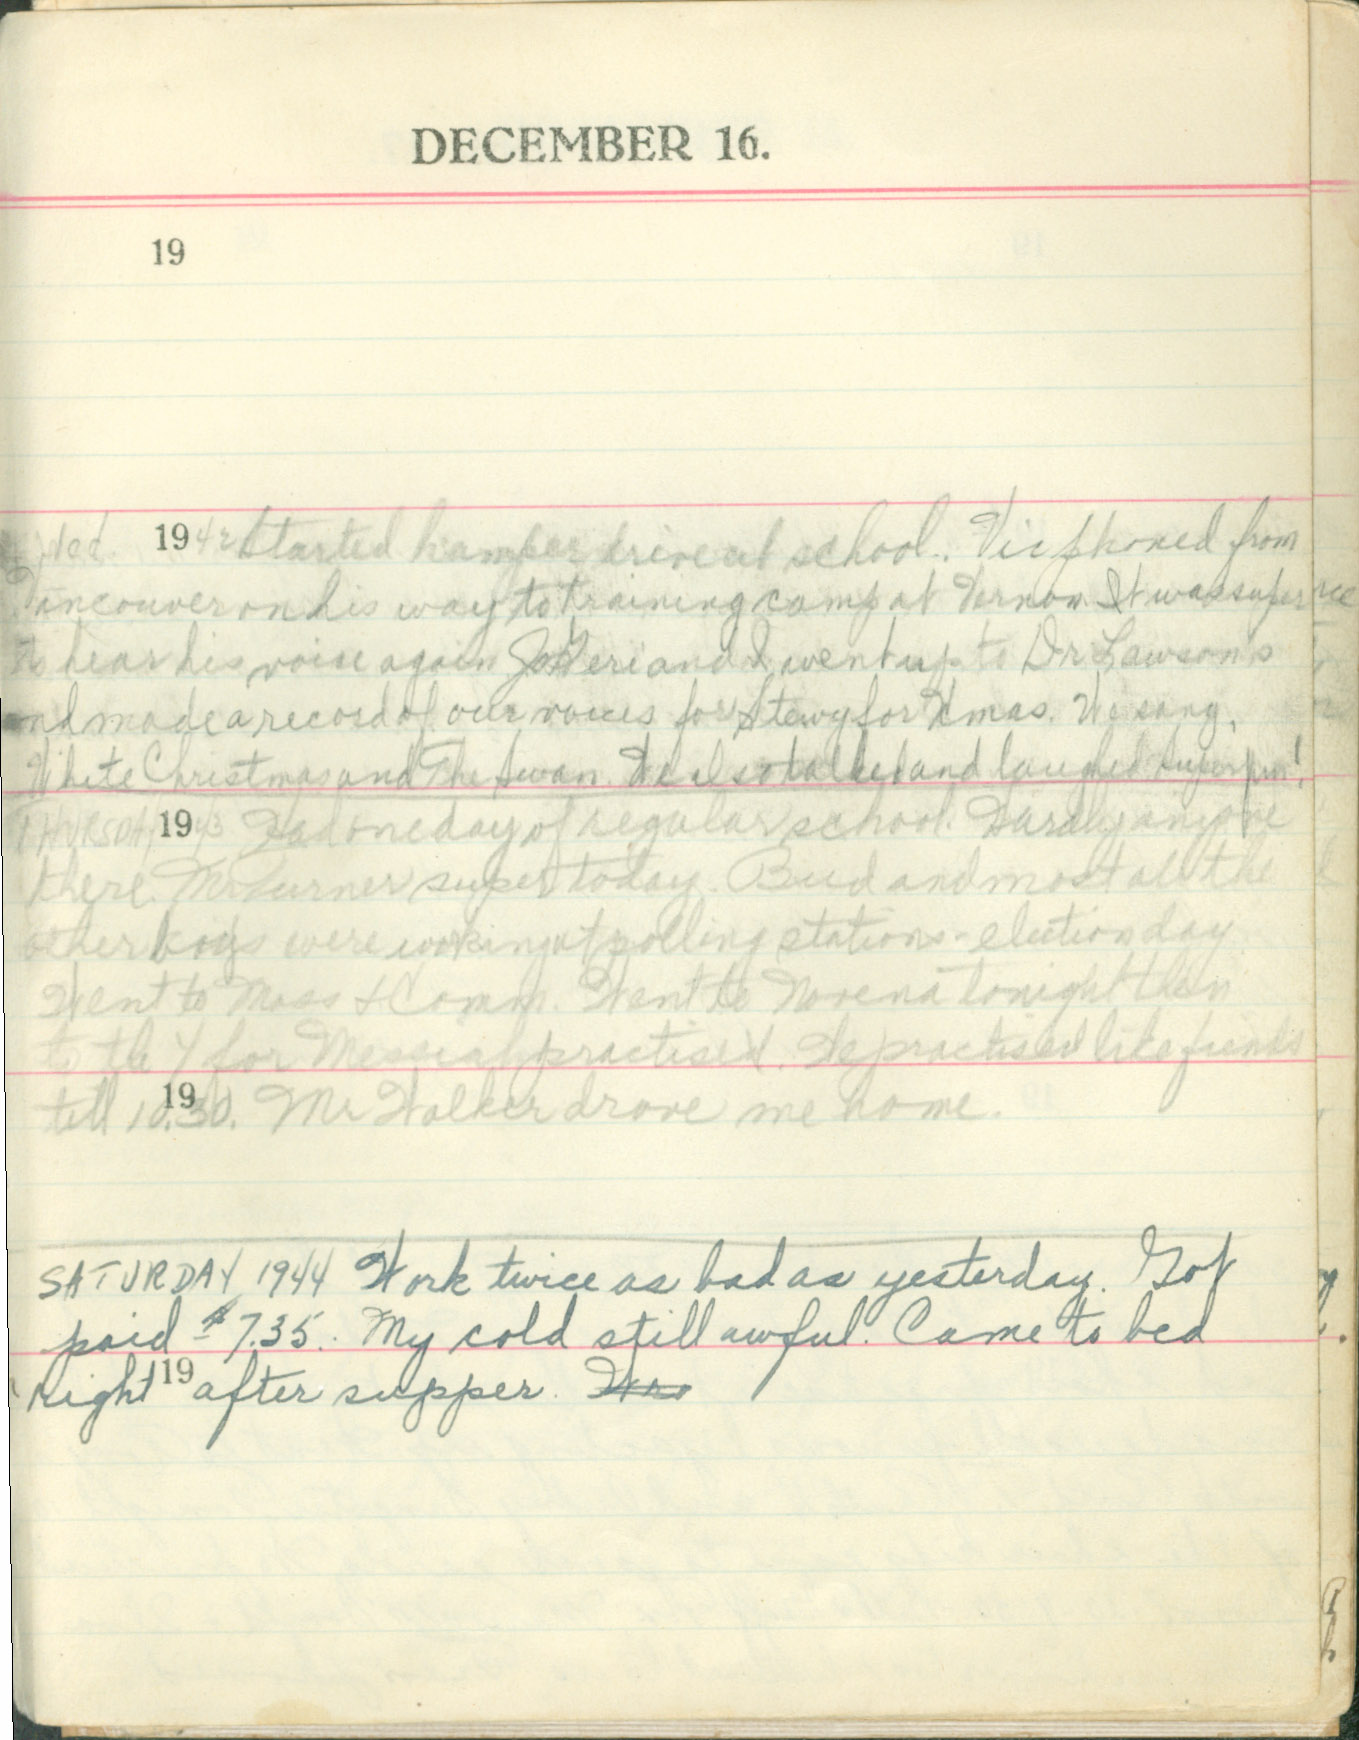 DECEMBER 16.
19
Wed. 1942 Started hamper drive at school. Vic phoned from
Vancouver on his way to training camp at Vernon. It was super
to hear his voice again. Jo Geri and I went up to Dr Lawson's
and made a record of our voices for Stewy for Xmas. We sang,
White Christmas and The Swan. We also talked and laughed super fun!
THURSDAY 1943 Had one day of regular school. Hardly anyone
there. Mr Turner super today. Bud and most all the
other boys were working at polling stations - election day
Went to Mass & Comm. Went to Novena tonight then
to the Y for Messiah practise. We practised like fiends
19
till 10.30. Mr Walker drove me home.
SATURDAY 1944 Work twice as bad as yesterday. Got
paid $7.35. My cold still awful. Came to bed
right 19 after supper.